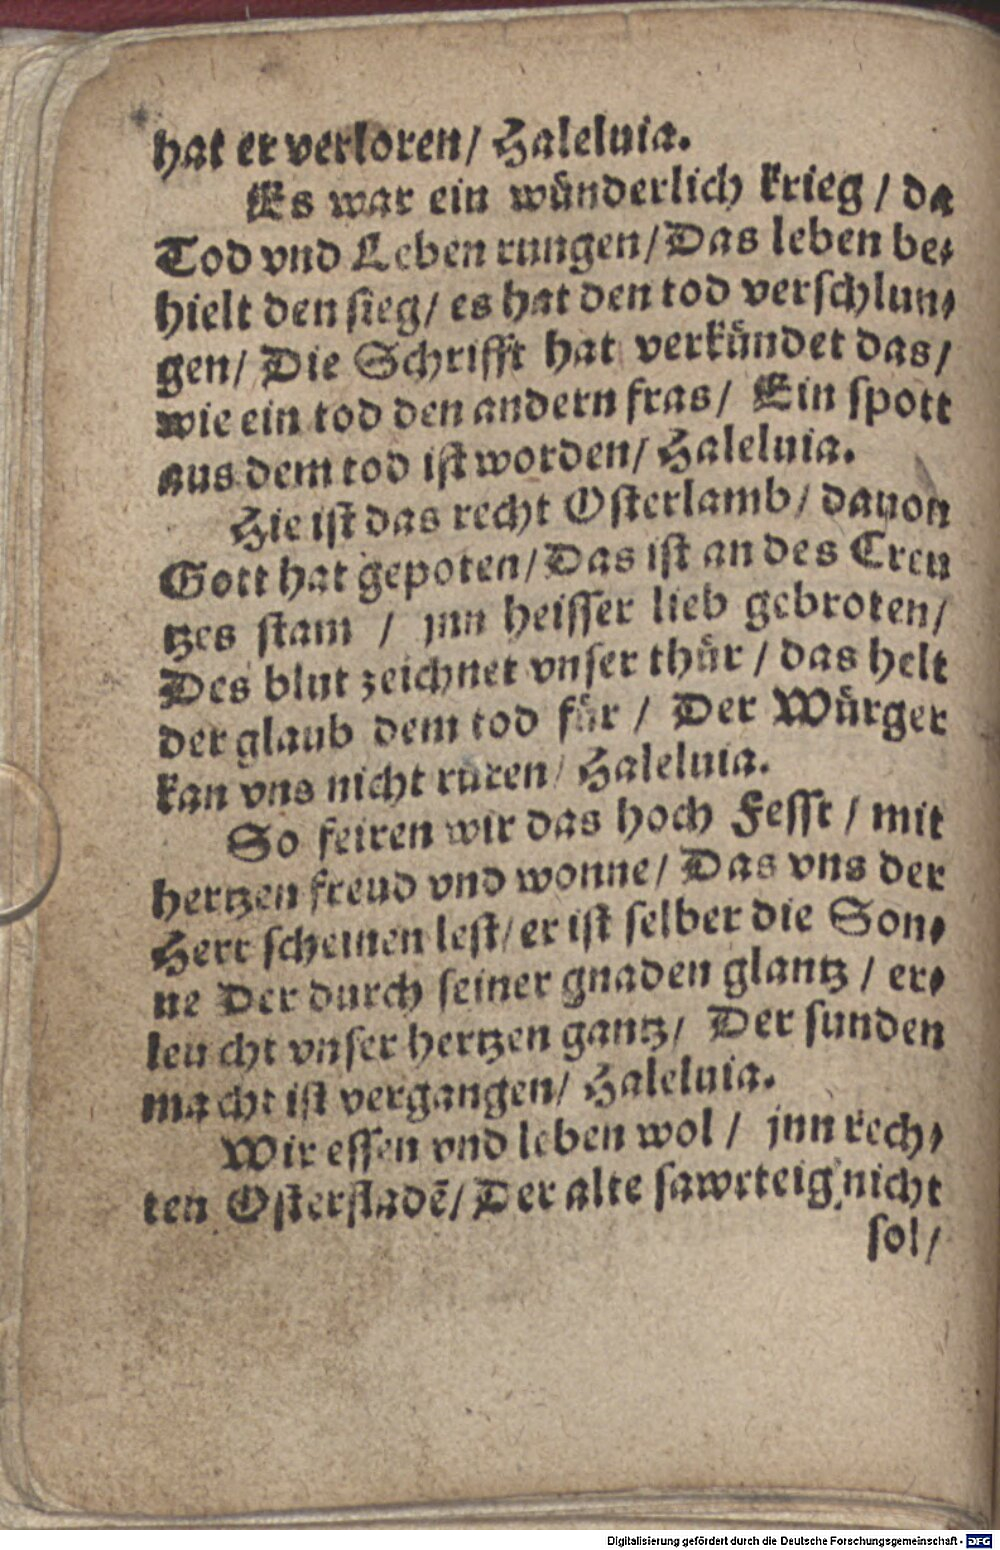 hat er verloren/ Haleluia.
Es war ein wünderlich krieg / da
Tod vnd Leben rungen/ Das leben be-
hielt den sieg/ es hat den tod verschlun-
gen/ Die Schrifft hat verkündet das/
wie ein tod den andern fras/ Ein spott
aus dem tod ist worden/ Haleluia.
Hie ist das recht Osterlamb/ dauon
Gott hat gepoten/ Das ist an des Creu
tzes stam / jnn heisser lieb gebroten/
Des blut zeichnet vnser thür / das helt
der glaub dem tod für / Der Würger
kan vns nicht rüren/ Haleluia.
So feiren wir das hoch Fesst / mit
hertzen freud vnd wonne/ Das vns der
Herr scheinen lest/ er ist selber die Son-
ne Der durch seiner gnaden glantz / er-
leucht vnser hertzen gantz/ Der sunden
macht ist vergangen/ Haleluia.
Wir essen vnd leben wol / jnn rech-
ten Osterfladē/ Der alte sawrteig nicht
sol/
Digitalisierung gefördert durch die Deutsche Forschungsgemeinschaft - DFG